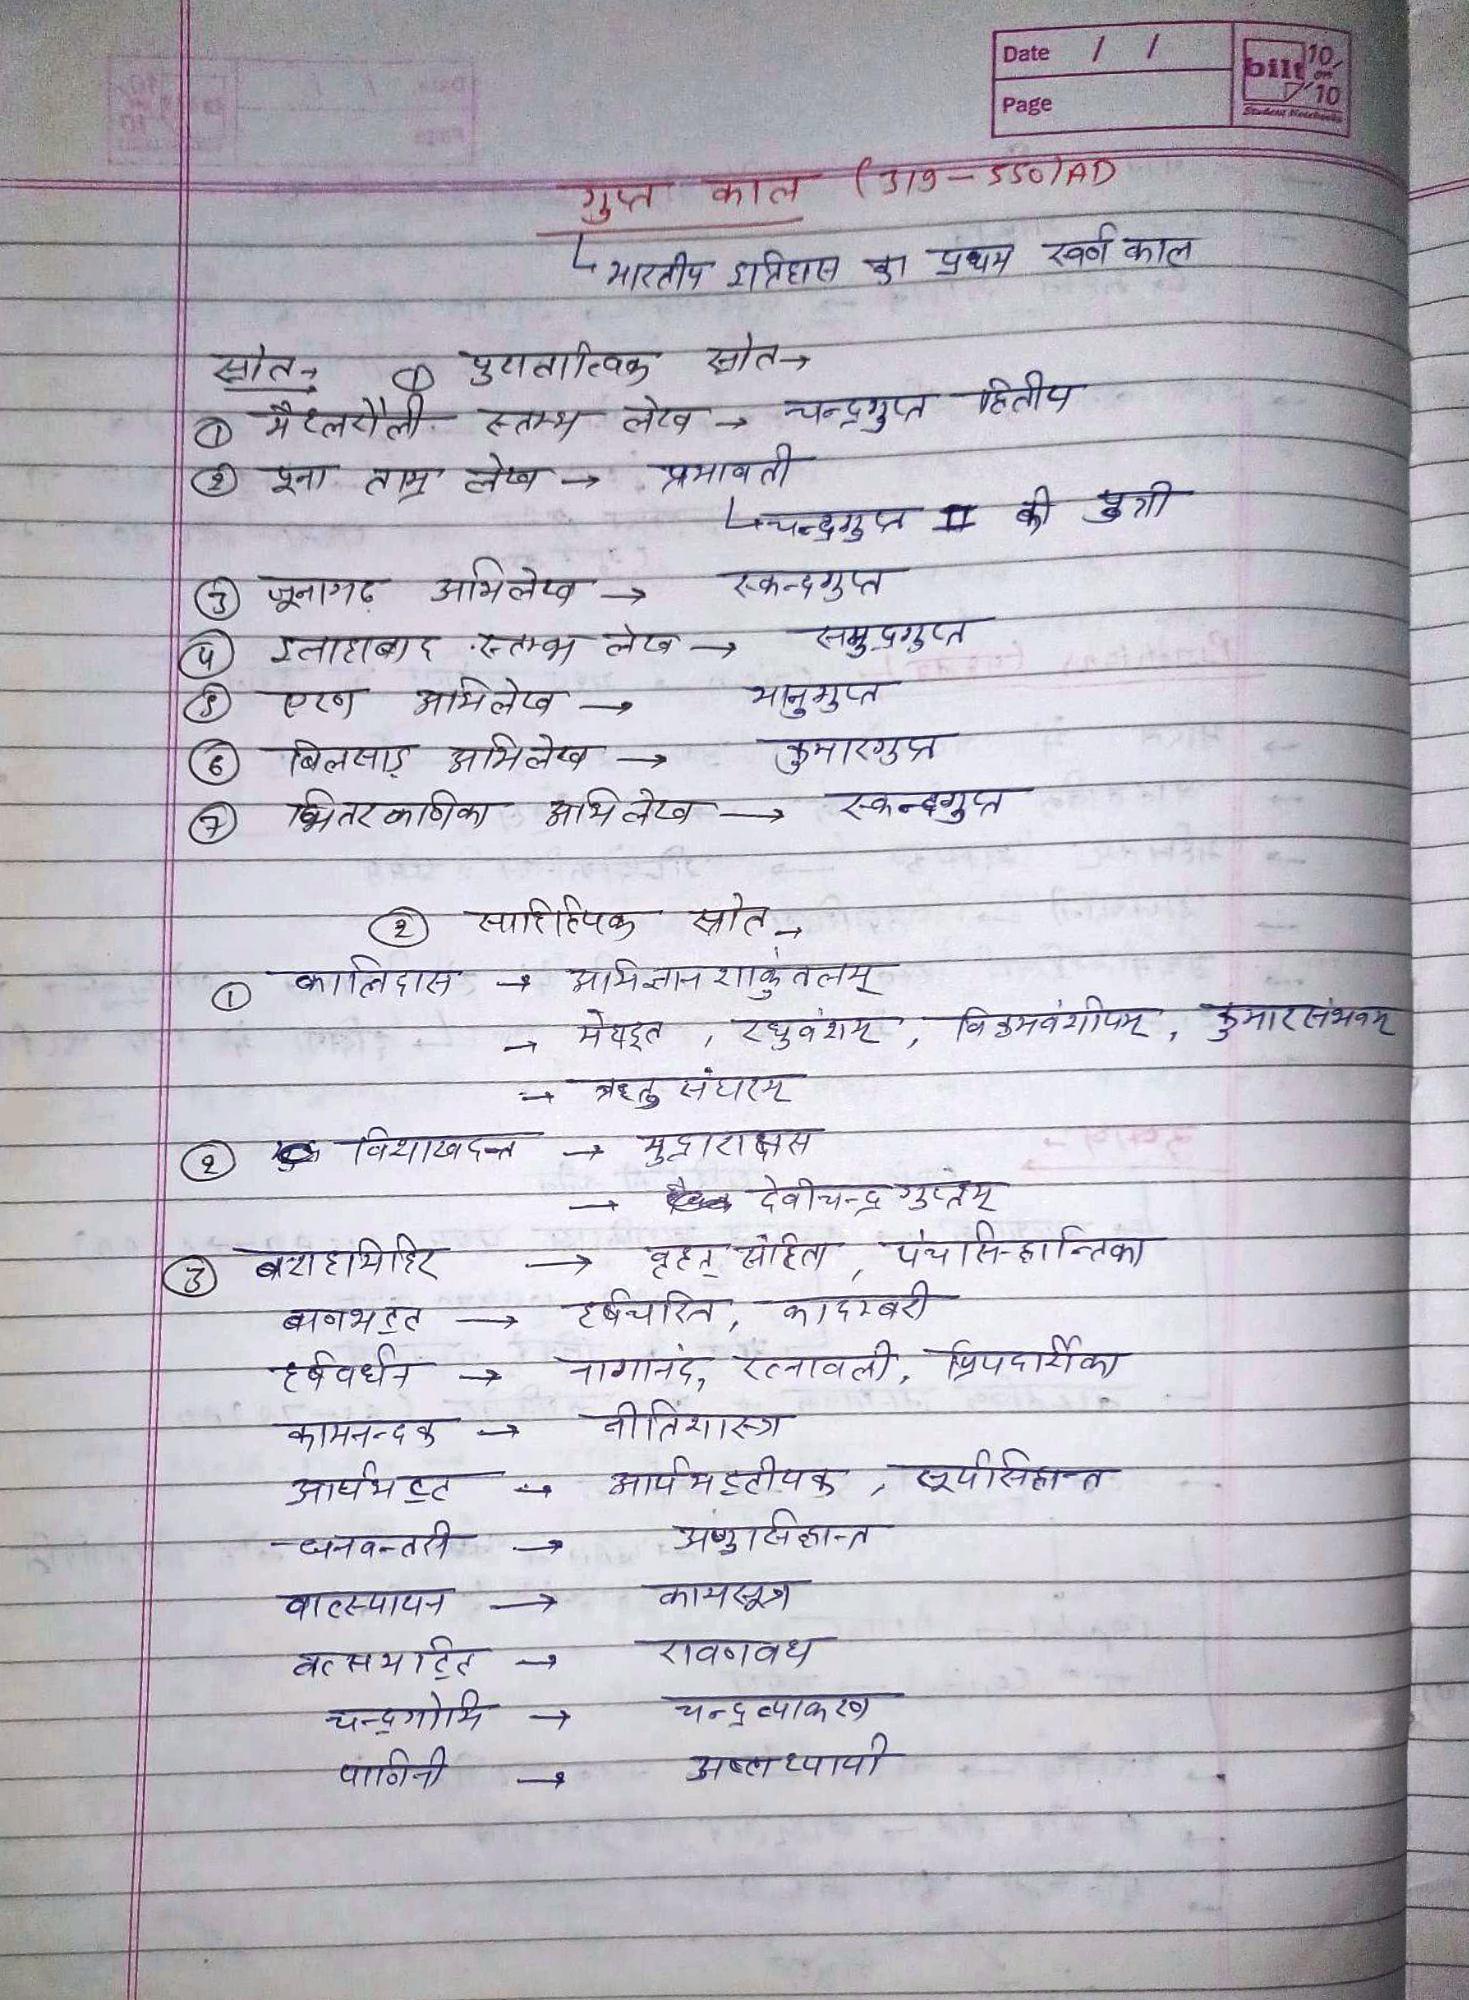 Date / /
Page
bilt 10 on 10
Student Notebooks
गुप्त काल (319-550)AD
भारतीय इतिहास का प्रथम स्वर्ण काल
स्रोत→ ① पुरातात्विक स्रोत→
① मैहलरौली स्तम्भ लेख → चन्द्रगुप्त द्वितीय
② पूना ताम्र लेख → प्रभावती
चन्द्रगुप्त II की पुत्री
③ जूनागढ़ अभिलेख → स्कन्दगुप्त
④ इलाहाबाद स्तम्भ लेख → समुद्रगुप्त
⑤ एरण अभिलेख → भानुगुप्त
⑥ बिलसाड़ अभिलेख → कुमारगुप्त
⑦ भितरकाणिका अभिलेख → स्कन्दगुप्त
② साहित्यिक स्रोत→
① कालिदास → अभिज्ञान शाकुंतलम्
→ मेघदूत , रघुवंशम् , विक्रमवंशीयम् , कुमारसंभवम्
→ ऋतु संघारम्
② विशाखदत्त → मुद्राराक्षस
→ देवीचन्द्रगुप्तम्
③ बराहामिहिर → वृहत् संहिता , पंचसिद्धान्तिका
बाणभट्ट → हर्षचरित , कादम्बरी
हर्षवर्धन → नागानंद, रत्नावली, प्रियदर्शिका
कामन्दक → नीतिशास्त्र
आर्यभट्ट → आर्यभट्टीयक , सूर्यसिद्धान्त
धनवन्तरी →
वात्स्यायन → कामसूत्र
वत्सभट्टि → रावणवध
चन्द्रगोमि → चन्द्र व्याकरण
पाणिनी → अष्टाध्यायी